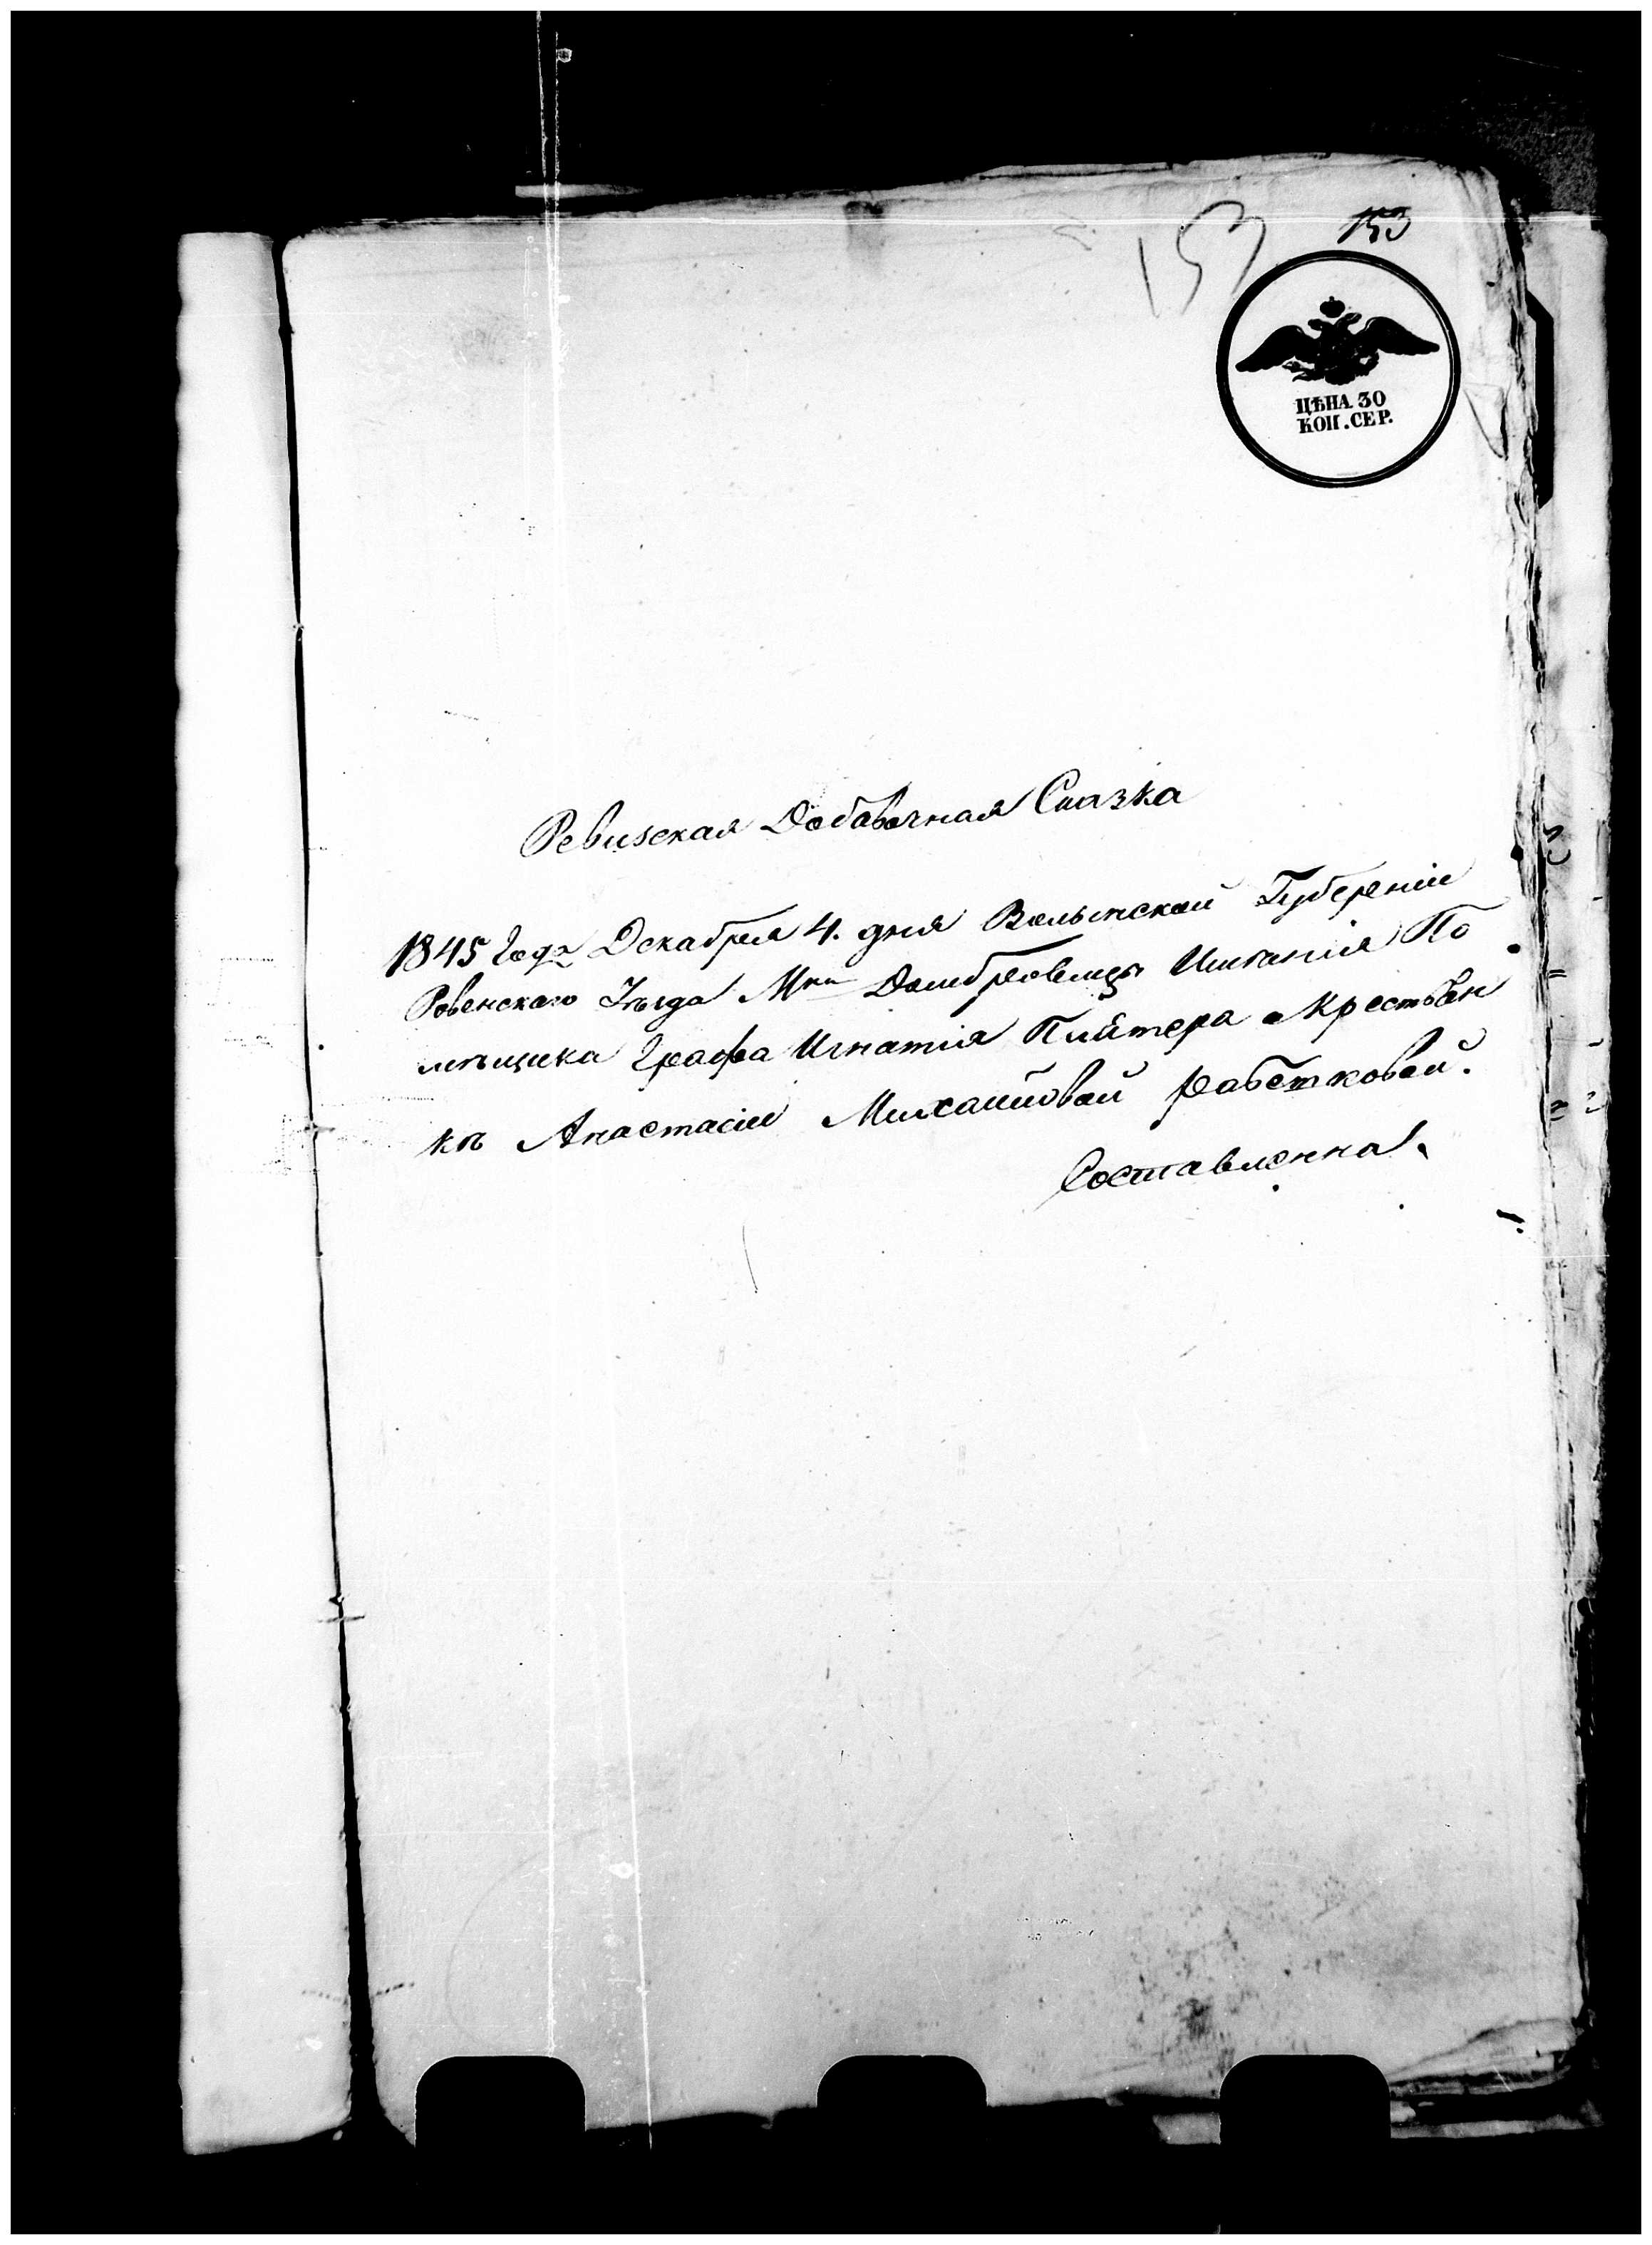 153 153
ЦѢНА 30
КОП. СЕР.
Ревизская Добавочная Сказка
1845 Года Декабря 4. дня Волынской Губерніи
Ровенского Уѣзда Мка Домбровицы Имѣнія По
мѣщика Графа Игнатія Плятера Крестьян
кѣ Анастасіи Михайловой
Составленна.